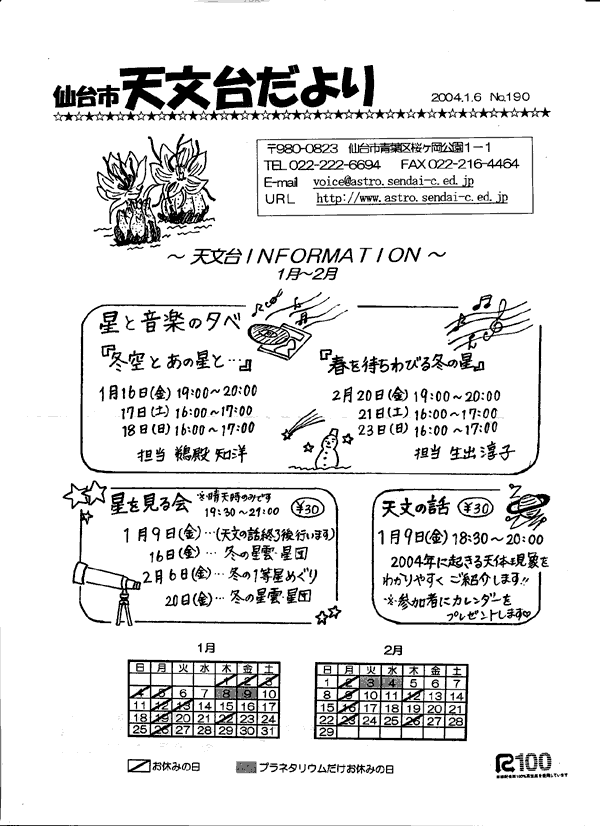 仙台市 天文台だより 2004.1.6 No.190
☆★☆★☆★☆★☆★☆★☆★☆★☆★☆★☆★☆★☆★☆★☆★☆★☆★☆★☆★☆★☆★☆★☆★
〒980-0823 仙台市青葉区桜ヶ岡公園1-1
TEL 022-222-6694 FAX 022-216-4464
E-mail voice@astro.sendai-c.ed.jp
URL http://www.astro.sendai-c.ed.jp
～ 天文台INFORMATION ～
1月～2月
星と音楽の夕べ
『冬空とあの星と…』
1月16日(金) 19:00～20:00
17日(土) 16:00～17:00
18日(日) 16:00～17:00
担当 鵜殿 知洋
『春を待ちわびる冬の星』
2月20日(金) 19:00～20:00
21日(土) 16:00～17:00
23日(日) 16:00～17:00
担当 生出 淳子
星を見る会 ※晴天時のみです
19:30～21:00 ¥30
1月9日(金)…(天文の話終了後行います)
16日(金)… 冬の星雲・星団
2月6日(金)… 冬の1等星めぐり
20日(金)… 冬の星雲・星団
天文の話 ¥30
1月9日(金) 18:30～20:00
2004年に起きる天体現象を
わかりやすく ご紹介します!!
※参加者にカレンダーを
プレゼントします♡
1月
日 月 火 水 木 金 土
1 2 3
4 5 6 7 8 9 10
11 12 13 14 15 16 17
18 19 20 21 22 23 24
25 26 27 28 29 30 31
2月
日 月 火 水 木 金 土
1 2 3 4 5 6 7
8 9 10 11 12 13 14
15 16 17 18 19 20 21
22 23 24 25 26 27 28
29
お休みの日 プラネタリウムだけお休みの日
R100